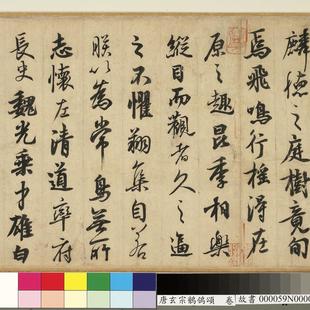 麟德之庭樹竟旬
焉飛鳴行搖得在
原之趣昆季相樂
縱目而觀者久之逼
之不懼翔集自若
朕以為常鳥無所
志懷左清道率府
長史魏光乘才雄白
唐玄宗鶺鴒頌 卷 故書 000059N0000